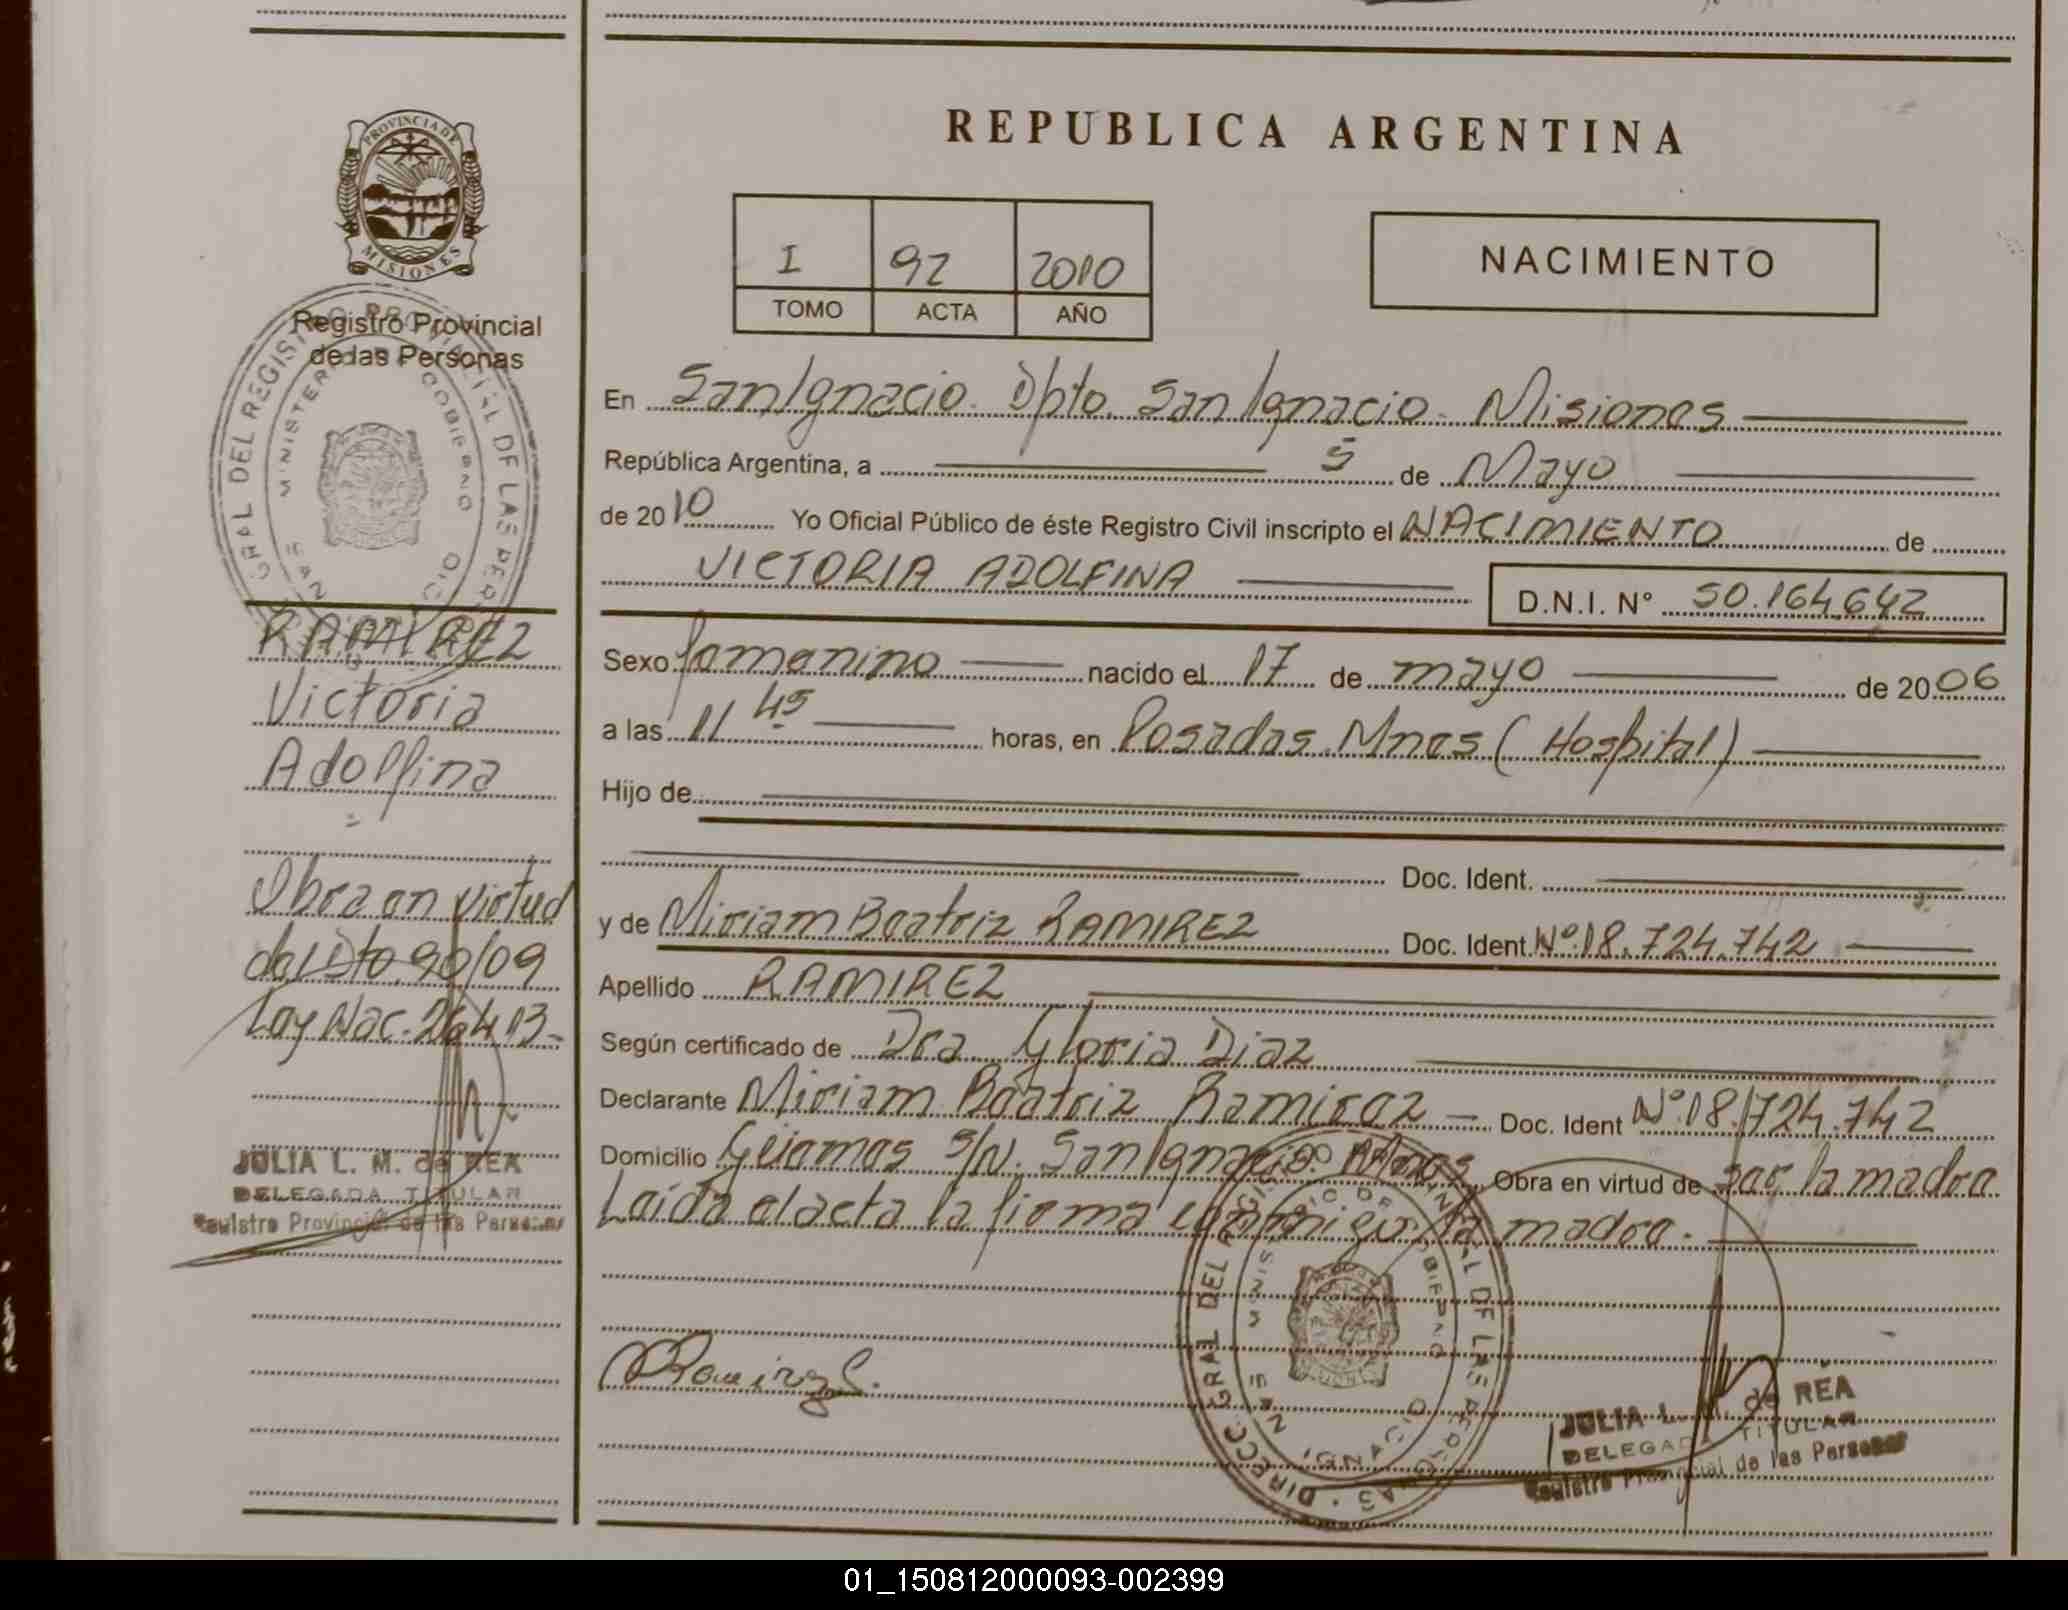 PROVINCIA DE
MISIONES
Registro Provincial
de las Personas
RAMIREZ
Victoria
Adolfina
Obra en virtud
del Dto. 90/09
Ley Nac. 26413-
JULIA L. M. de REA
DELEGADA TITULAR
Registro Provincial de las Personas
REPUBLICA ARGENTINA
I 92 2010
TOMO ACTA AÑO
NACIMIENTO
En San Ignacio. Dpto. San Ignacio. Misiones
República Argentina, a 5 de Mayo
de 2010 Yo Oficial Público de éste Registro Civil inscripto el NACIMIENTO de
VICTORIA ADOLFINA D.N.I. N° 50.164.642
Sexo femenino nacido el 17 de mayo de 2006
a las 11 45 horas, en Posadas. Mnes (Hospital)
Hijo de
Doc. Ident.
y de Miriam Beatriz RAMIREZ Doc. Ident. Nº 18.724.742
Apellido RAMIREZ
Según certificado de Dra. Gloria Diaz
Declarante Miriam Beatriz Ramirez Doc. Ident Nº 18.724.742
Domicilio S/N. San Ignacio. Mnes Obra en virtud de ser la madre
Leída el acta la firma conmigo la madre.
Ramirez
JULIA L. M. de REA
DELEGADA TITULAR
Registro Provincial de las Personas
01_150812000093-002399